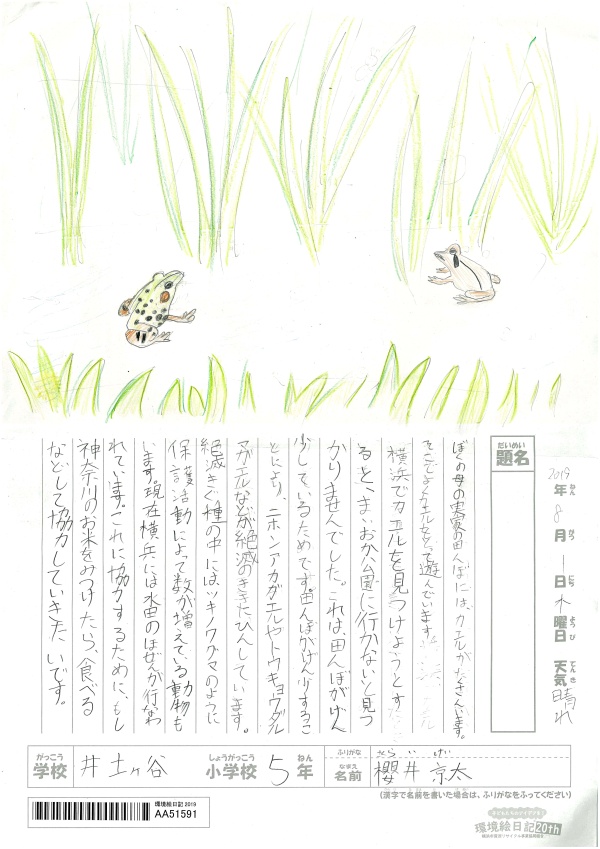 だいめい
題名
2019年 8月 1日 木曜日 天気 晴れ
ねん がつ にち ようび てんき
ぼくの母の実家の田んぼには、カエルがたくさんいます。
そこでよくカエルをとって遊んでいます。
横浜でカエルを見つけようとす
ると、まいおか公園に行かないと見つ
かりませんでした。これは、田んぼがげん
少しているためです。田んぼがげん少するこ
とにより、ニホンアカガエルやトウキョウダル
マガエルなどが絶滅のききにひんしています。
絶滅きぐ種の中にはツキノワグマのように
保護活動によって数が増えている動物も
います。現在横兵には水田のほぜんが行なわ
れています。これに協力するために、もし
神奈川のお米をみつけたら、食べる
などして協力していきたいです。
がっこう
学校 井土ヶ谷
しょうがっこう ねん
小学校 5年
ふりがな さくらい
なまえ
名前 櫻井 京太
(漢字で名前を書いた場合は、ふりがなをふってください)
環境絵日記 2019
AA51591
環境絵日記20th